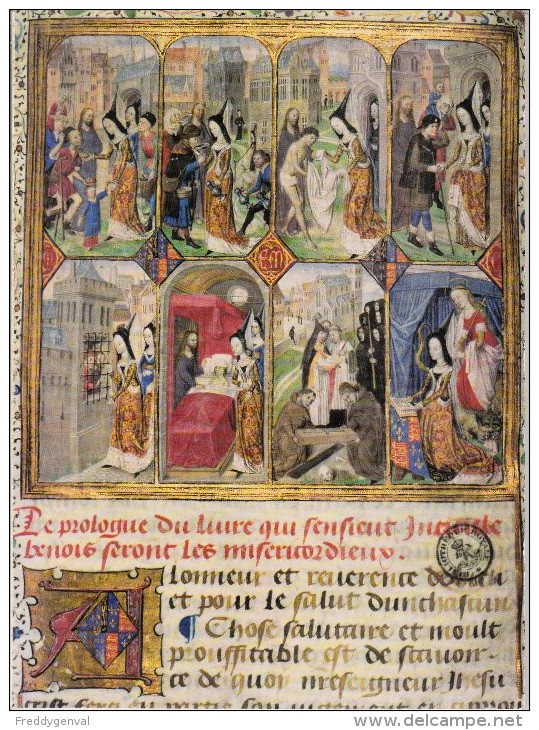 CM
Le prologue du liure qui sensieut Intitule
benois seront les misericordieux.
A lonneur et reuerence de
et pour le salut dunchascun
¶ Chose salutaire et moult
prouffitable est de scauoir
ce de quoy nreseigneur Ihesu
crist fera en partie son iugement en
Freddygenval
www.delcampe.net